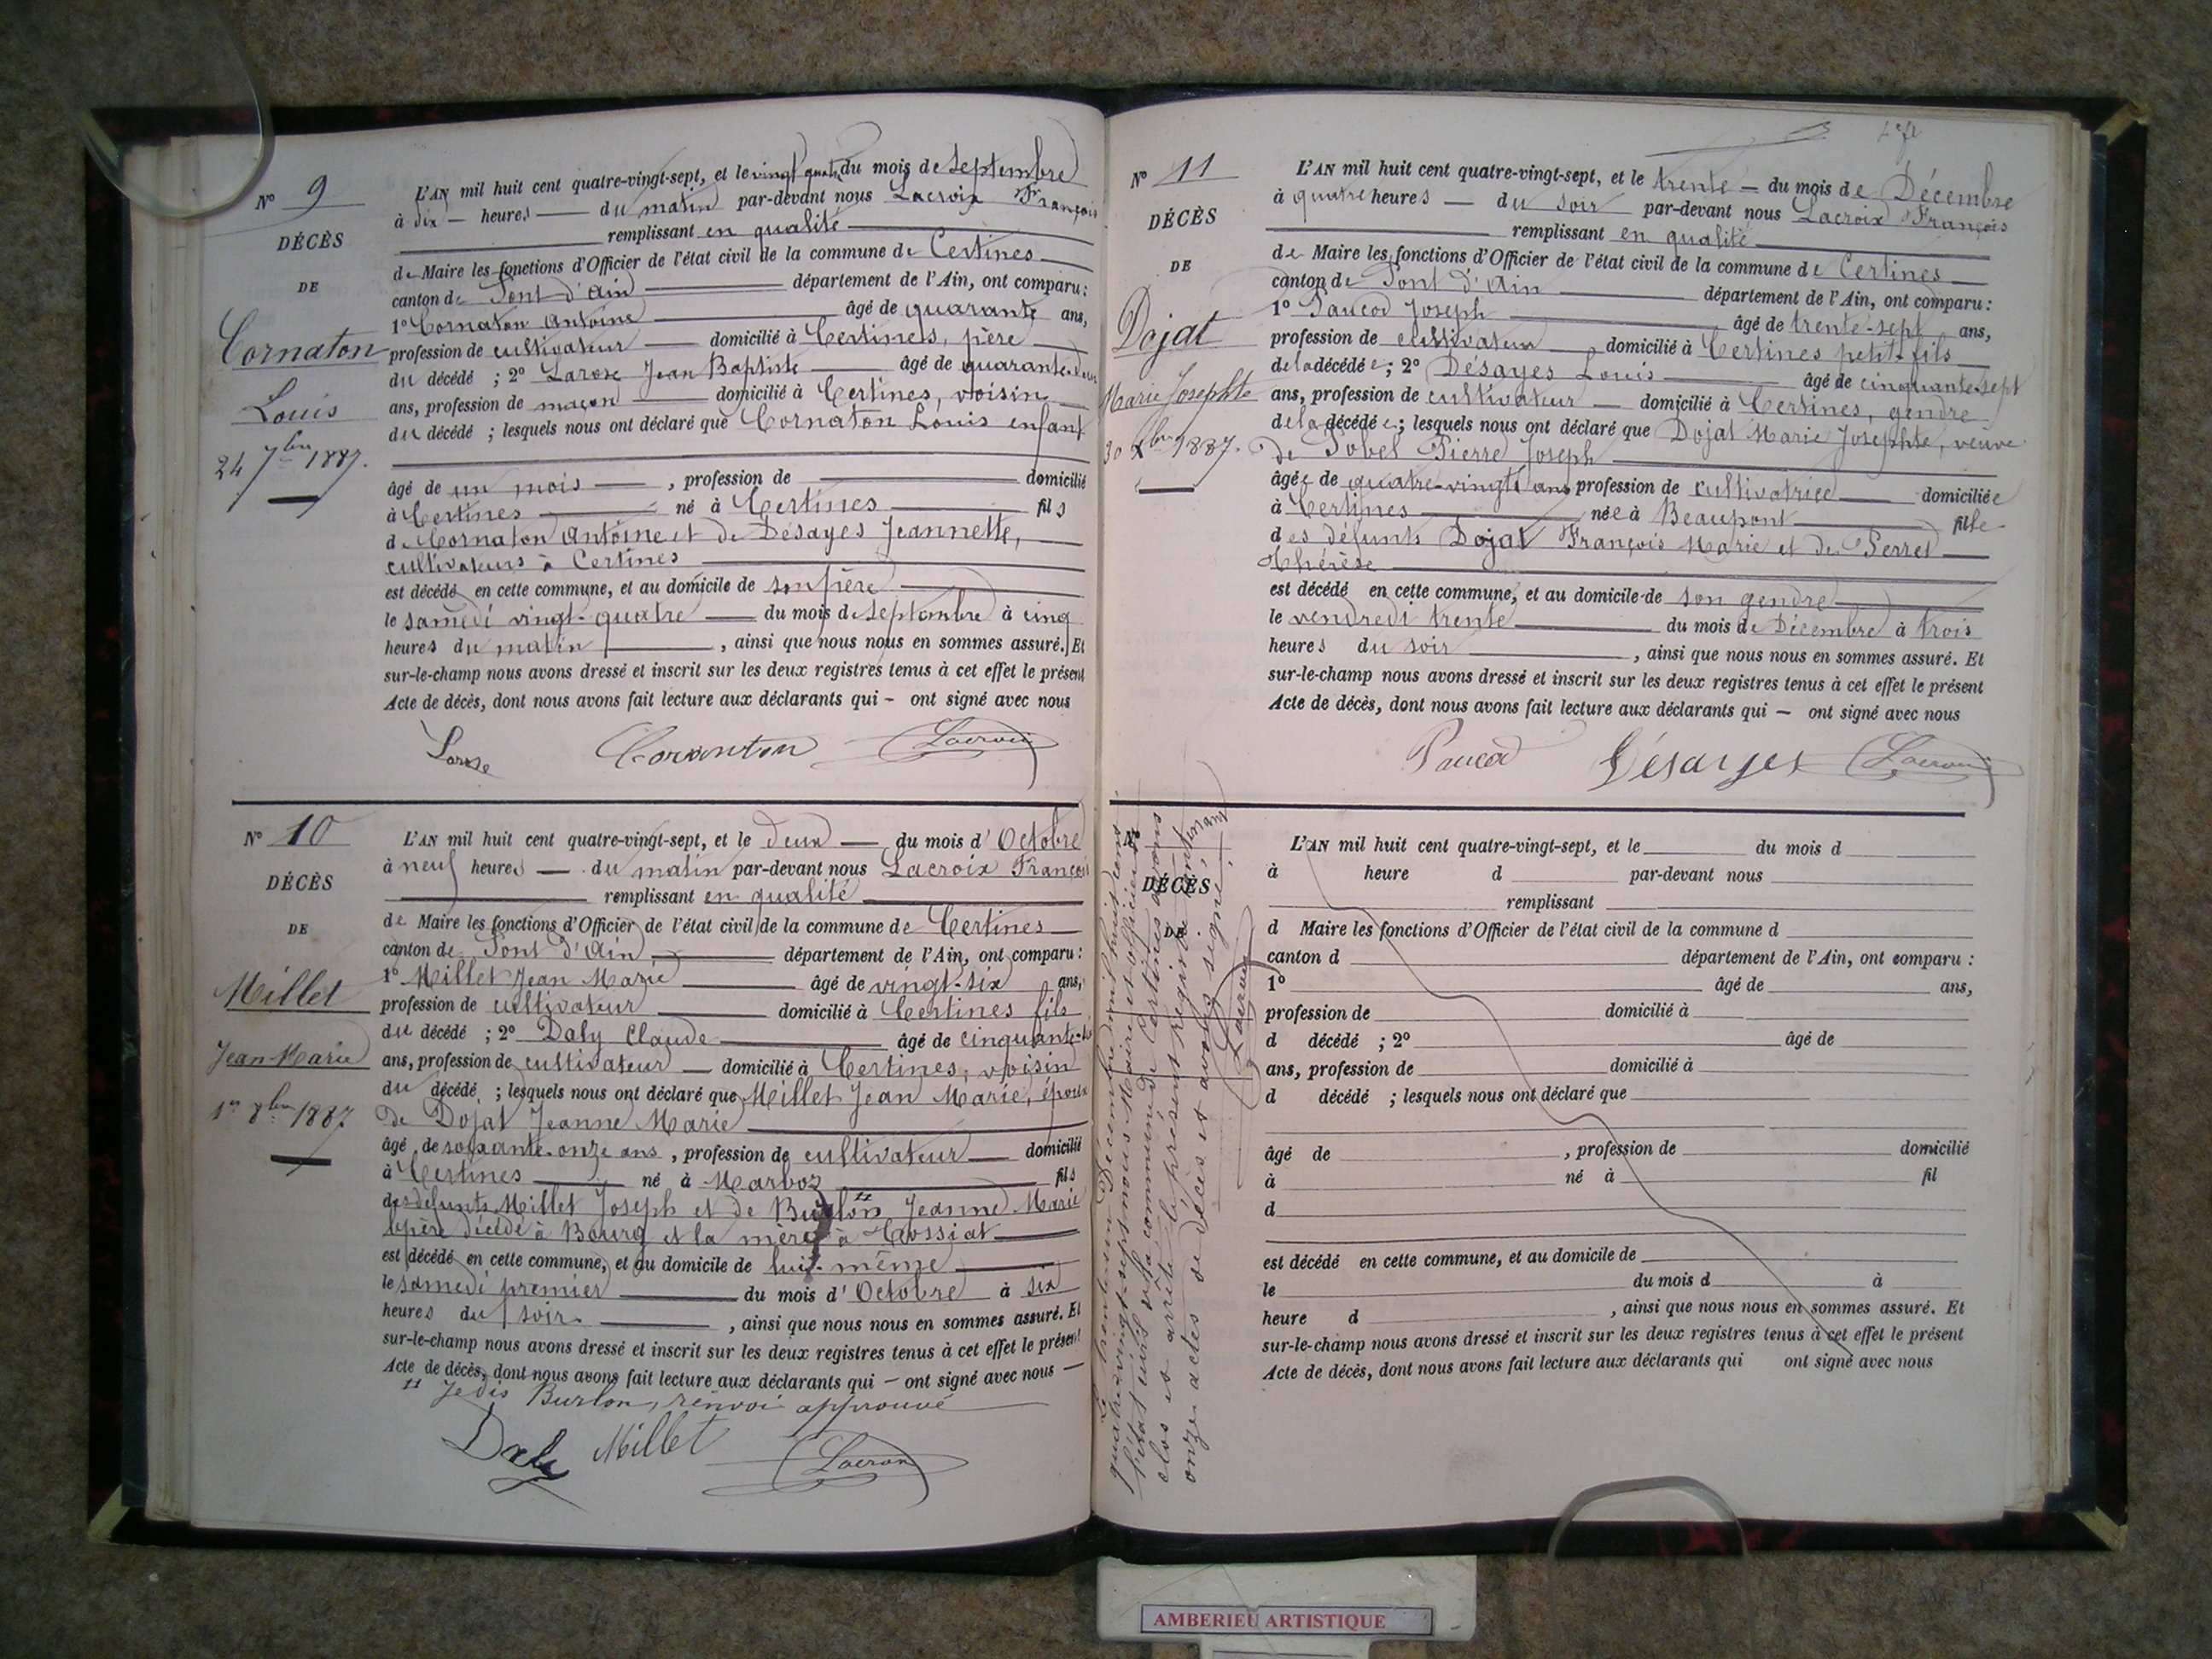 Nº 9
DÉCÈS
DE
Cornaton
Louis
24 7bre 1887.
L'AN mil huit cent quatre-vingt-sept, et le vingt quatre du mois de Septembre
à dix — heures — du matin par-devant nous Lacroix François
remplissant en qualité
de Maire les fonctions d'Officier de l'état civil de la commune de Certines
canton de Pont d'Ain département de l'Ain, ont comparu :
1º Cornaton Antoine âgé de quarante ans,
profession de cultivateur domicilié à Certines, père
du décédé ; 2º Larose Jean Baptiste âgé de quarante-deux
ans, profession de maçon domicilié à Certines, voisin
du décédé ; lesquels nous ont déclaré que Cornaton Louis enfant
âgé de un mois , profession de domicilié
à Certines né à Certines fils
de Cornaton Antoine et de Désayes Jeannette,
cultivateurs à Certines
est décédé en cette commune, et au domicile de son père
le samedi vingt-quatre du mois de Septembre à cinq
heures du matin , ainsi que nous nous en sommes assuré. Et
sur-le-champ nous avons dressé et inscrit sur les deux registres tenus à cet effet le présent
Acte de décès, dont nous avons fait lecture aux déclarants qui – ont signé avec nous
Larose Coranton Lacroix
Nº 10
DÉCÈS
DE
Millet
Jean Marie
1er 8bre 1887
L'AN mil huit cent quatre-vingt-sept, et le deux — du mois d'Octobre
à neuf heures — du matin par-devant nous Lacroix François
remplissant en qualité
de Maire les fonctions d'Officier de l'état civil de la commune de Certines
canton de Pont d'Ain département de l'Ain, ont comparu :
1º Millet Jean Marie âgé de vingt-six ans,
profession de cultivateur domicilié à Certines fils
du décédé ; 2º Daly Claude âgé de cinquante-
ans, profession de cultivateur — domicilié à Certines, voisin
du décédé ; lesquels nous ont déclaré que Millet Jean Marie, époux
de Dojat Jeanne Marie
âgé de soixante-onze ans , profession de cultivateur domicilié
à Certines né à Marboz fils
des défunts Millet Joseph et de Burlon Jeanne Marie
le père décédé à Bourg et la mère à Tossiat
est décédé en cette commune, et au domicile de lui-même
le samedi premier du mois d'Octobre à six
heures du soir. , ainsi que nous nous en sommes assuré. Et
sur-le-champ nous avons dressé et inscrit sur les deux registres tenus à cet effet le présent
Acte de décès, dont nous avons fait lecture aux déclarants qui – ont signé avec nous —
Je dis Burlon, renvoi approuvé
Daly Millet Lacroix
Nº 11
DÉCÈS
DE
Dojat
Marie Josephte
30 Xbre 1887.
L'AN mil huit cent quatre-vingt-sept, et le trente — du mois de Décembre
à quatre heures — du soir par-devant nous Lacroix François
remplissant en qualité
de Maire les fonctions d'Officier de l'état civil de la commune de Certines
canton de Pont d'Ain département de l'Ain, ont comparu :
1º Paucod Joseph âgé de trente-sept ans,
profession de cultivateur domicilié à Certines petit-fils
de la décédée ; 2º Désayes Louis âgé de cinquante-sept
ans, profession de cultivateur — domicilié à Certines, gendre
de la décédée ; lesquels nous ont déclaré que Dojat Marie Josephte, veuve
de Pobel Pierre Joseph
âgée de quatre-vingts ans profession de cultivatrice domiciliée
à Certines née à Beaupont fille
des défunts Dojat François Marie et de Perret
Thérèse
est décédé en cette commune, et au domicile de son gendre
le vendredi trente du mois de Décembre à trois
heures du soir , ainsi que nous nous en sommes assuré. Et
sur-le-champ nous avons dressé et inscrit sur les deux registres tenus à cet effet le présent
Acte de décès, dont nous avons fait lecture aux déclarants qui — ont signé avec nous
Paucod Désayes Lacroix
Le trente un Décembre mil huit cent
quatre-vingt-sept nous Maire et officier de
l'état civil de la commune de Certines avons
clos et arrêté le présent registre contenant
onze actes de décès et avons signé.
Lacroix
Nº
DÉCÈS
DE
L'AN mil huit cent quatre-vingt-sept, et le du mois d
à heure d par-devant nous
remplissant
d Maire les fonctions d'Officier de l'état civil de la commune d
canton d département de l'Ain, ont comparu :
1º âgé de ans,
profession de domicilié à
d décédé ; 2º âgé de
ans, profession de domicilié à
d décédé ; lesquels nous ont déclaré que
âgé de , profession de domicilié
à né à fil
d
est décédé en cette commune, et au domicile de
le du mois d à
heure d , ainsi que nous nous en sommes assuré. Et
sur-le-champ nous avons dressé et inscrit sur les deux registres tenus à cet effet le présent
Acte de décès, dont nous avons fait lecture aux déclarants qui ont signé avec nous
AMBERIEU ARTISTIQUE